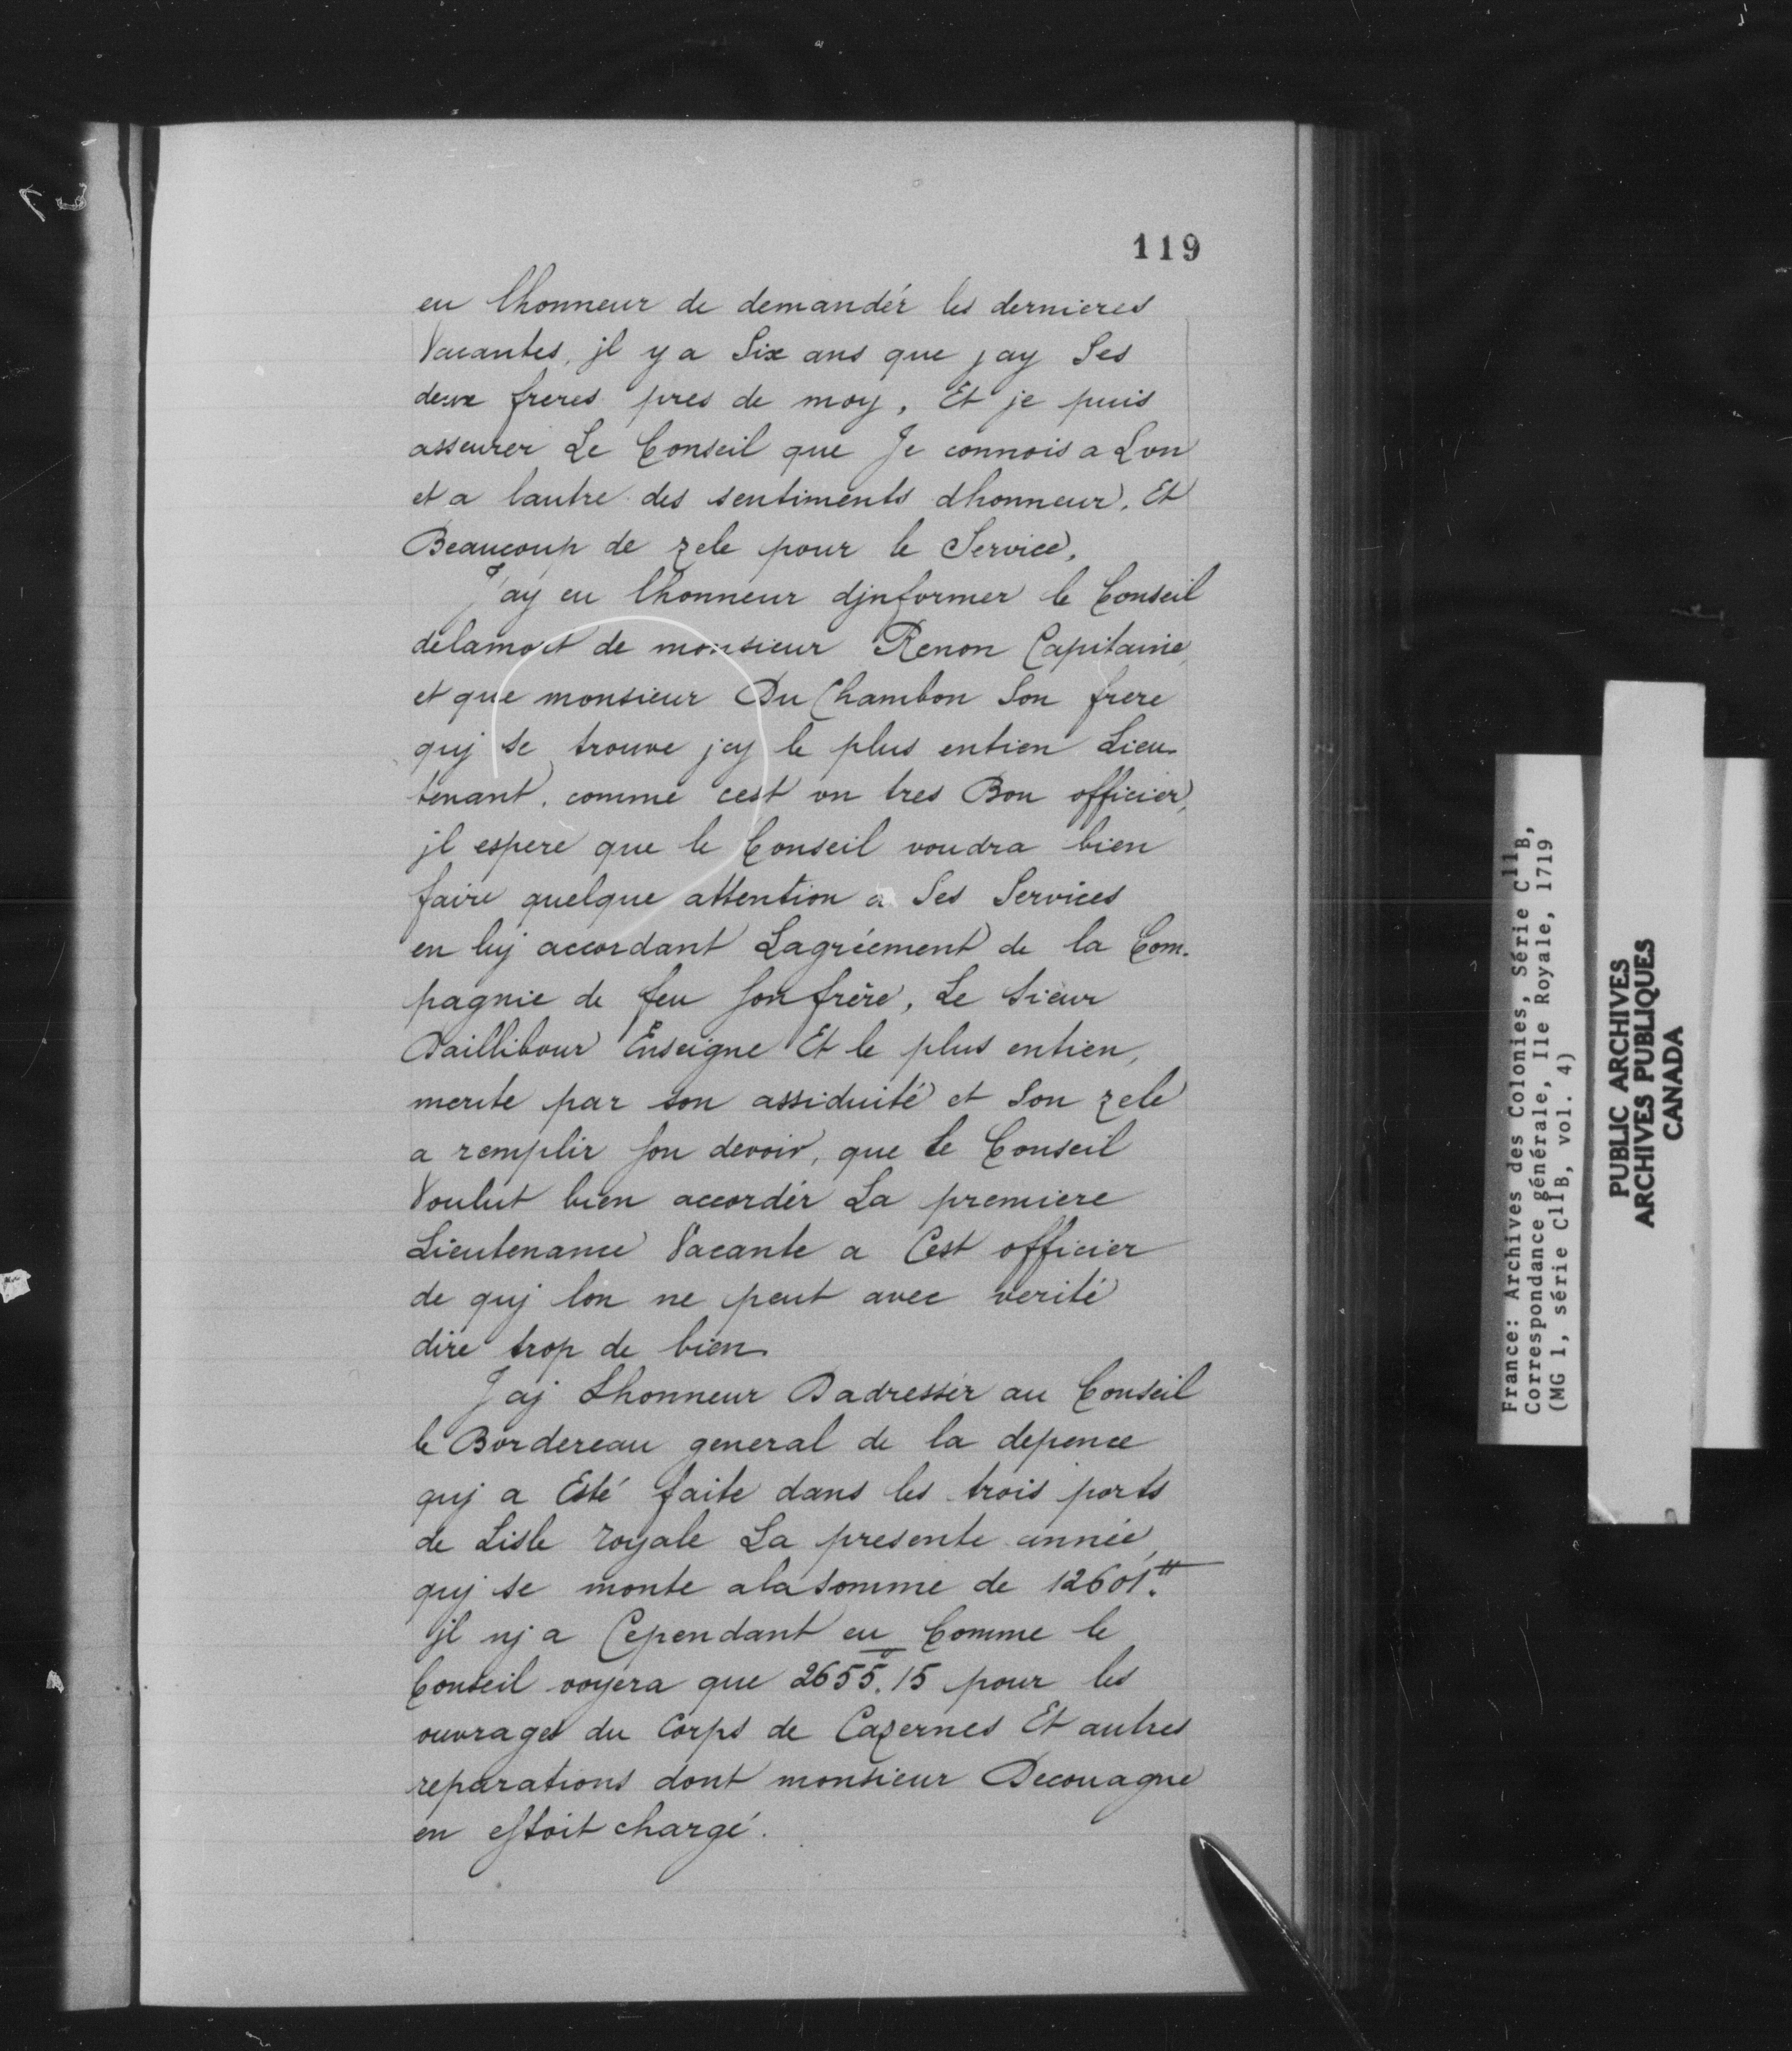 119
eu lhonneur de demandér les dernieres
Vacantes, jl y a Six ans que jay Ses
deux freres pres de moy, Et je puis
asseurer Le Conseil que Je connois a Lvn
et a lautre des sentiments dhonneur, Et
Beaucoup de zele pour le Service,
Jay eu lhonneur djnformer le Conseil
delamort de monsieur Renon Capitaine,
et que monsieur Du Chambon Son frere
quj se trouve jcy le plus entien Lieu-
tenant, comme cest vn tres Bon officier,
jl espere que le Conseil voudra bien
faire quelque attention a Ses Services
en luj accordant Lagréement de la Com-
pagnie de feu son frère, Le sieur
Daillibour Enseigne Et le plus entien,
merite par son assiduité et Son zele
a remplir son devoir, que le Conseil
Voulut bien accordér La premiere
Lieutenance Vacante a Cest officier
de quj lon ne peut avec verité
dire trop de bien
Jaj Lhonneur Dadressér au Conseil
le Bordereau general de la depence
quj a Esté faite dans les trois ports
de Lisle royale La presente année,
quj se monte ala somme de 12601.tt
jl nj a Cependant eu Comme le
Conseil voyera que 2655.15 pour les
ouvrages du Corps de Cazernes Et autres
reparations dont monsieur Decouagne
en estoit chargé.
France: Archives des Colonies, Série C11B,
Correspondance générale, Ile Royale, 1719
(MG 1, série C11B, vol. 4)
PUBLIC ARCHIVES
ARCHIVES PUBLIQUES
CANADA